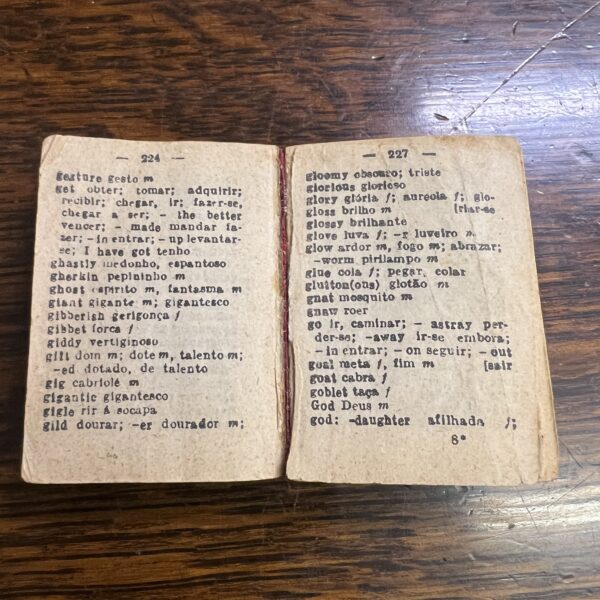 — 224 —
gesture gesto m
get obter; tomar; adquirir;
recibir; chegar, ir; fazer-se,
chegar a ser; - the better
vencer; - made mandar fa-
zer; - in entrar; - up levantar-
se; I have got tenho
ghastly medonho, espantoso
gherkin pepininho m
ghost espirito m, fantasma m
giant gigante m; gigantesco
gibberish gerigonça f
gibbet forca f
giddy vertiginoso
gift dom m; dote m, talento m;
-ed dotado, de talento
gig cabriolé m
gigantic gigantesco
gigle rir á socapa
gild dourar; -er dourador m;
— 227 —
gloomy obscuro; triste
glorious glorioso
glory glória f; aureola f; glo-
gloss brilho m [riar-se
glossy brilhante
glove luva f; -r luveiro m
glow ardor m, fogo m; abrazar;
-worm pirilampo m
glue cola f; pegar, colar
glutton(ous) glotão m
gnat mosquito m
gnaw roer
go ir, caminar; - astray per-
der-se; -away ir-se embora;
- in entrar; - on seguir; - out
goal meta f, fim m [sair
goat cabra f
goblet taça f
God Deus m
god: -daughter afilhada f;
8*